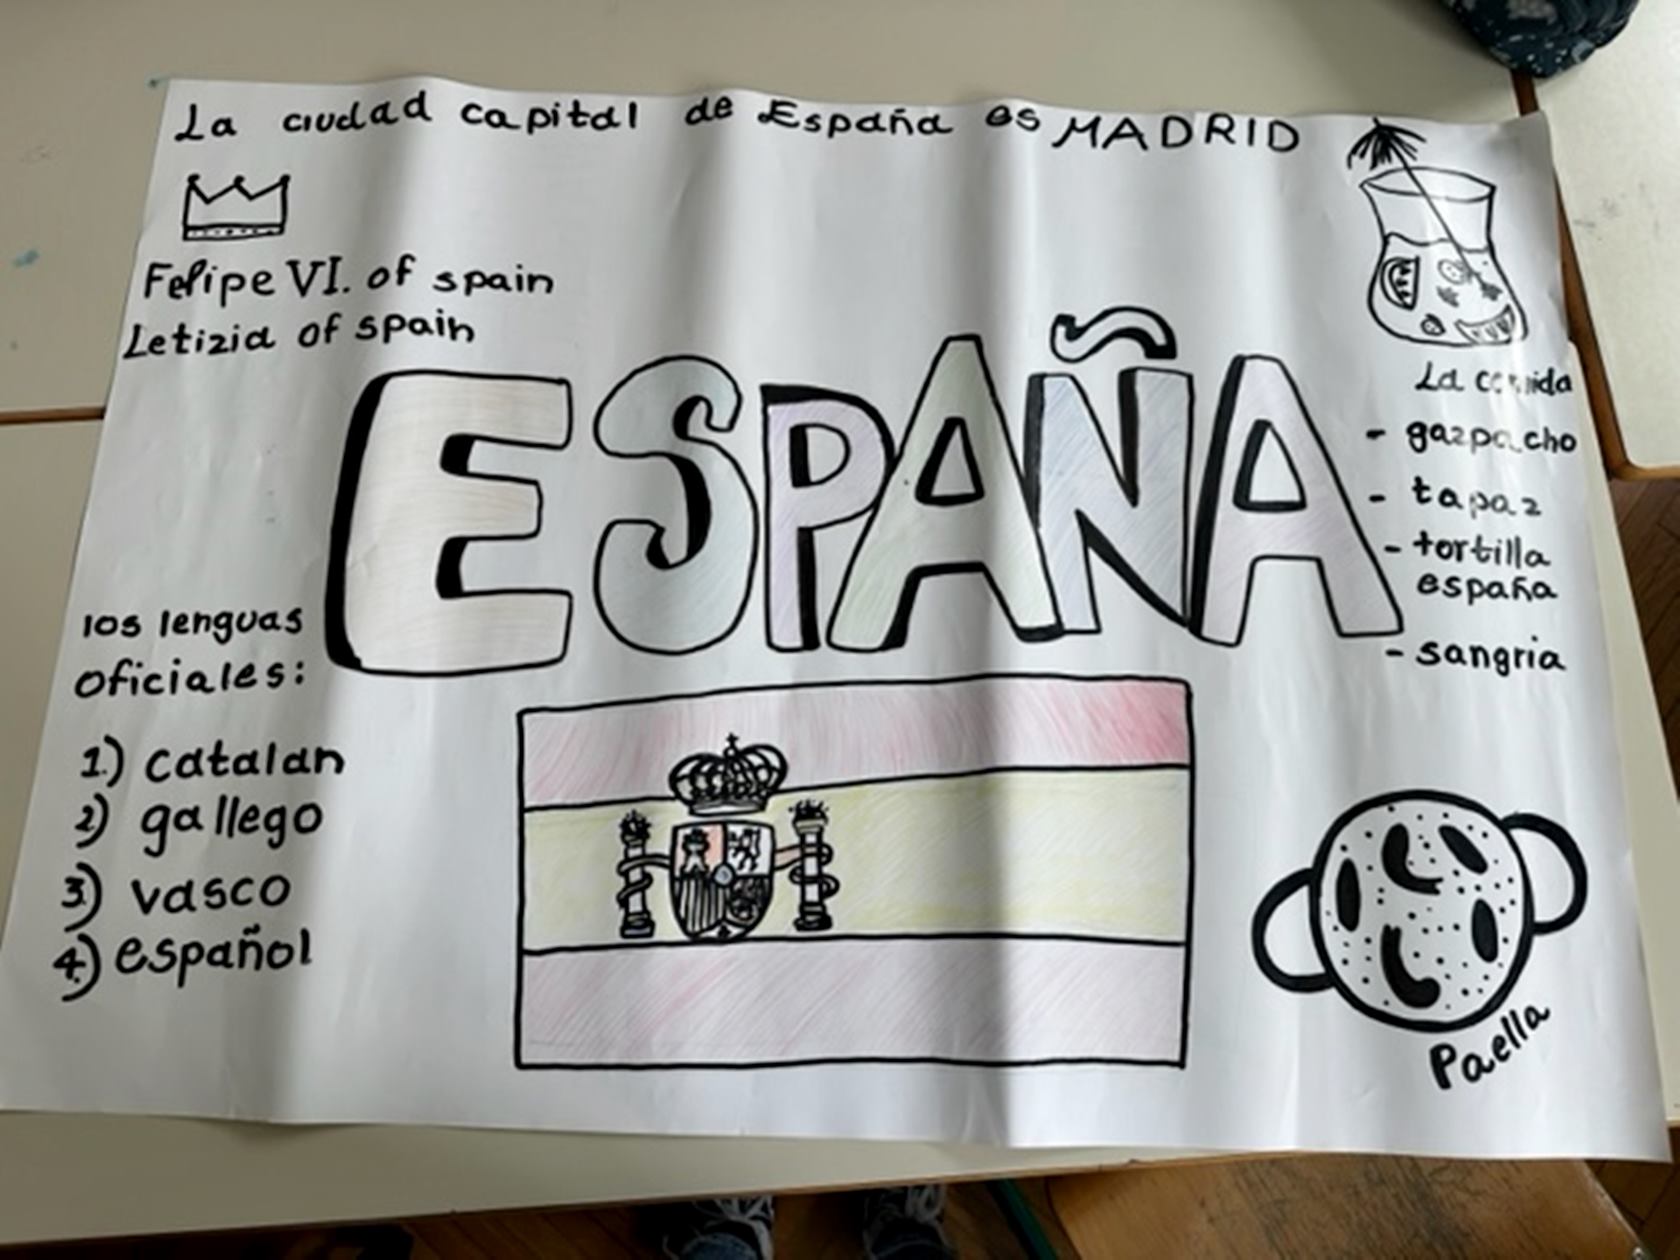 La ciudad capital de España es MADRID
Felipe VI. of spain
Letizia of spain
ESPAÑA
La comida
- gazpacho
- tapaz
- tortilla
españa
- sangria
los lenguas
oficiales:
1.) catalan
2) gallego
3) vasco
4.) español
Paella